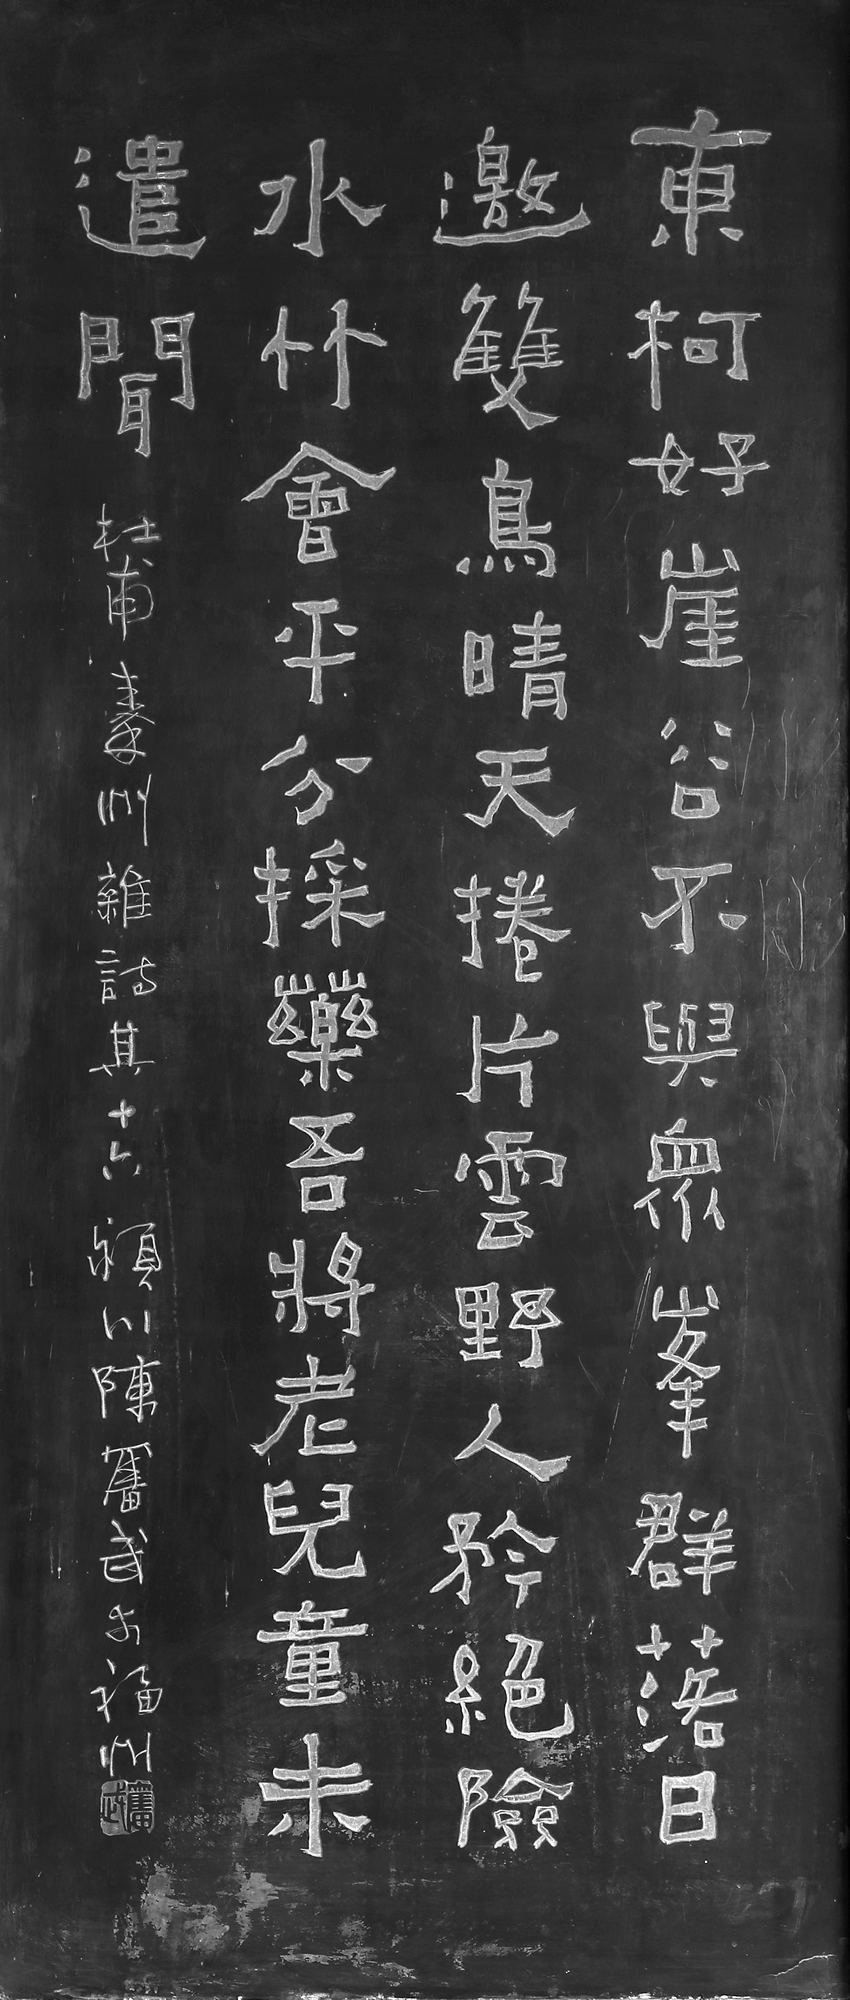 東柯好崖谷不與衆峯群落日
邀雙鳥晴天捲片雲野人矜絕險
水竹會平分採藥吾將老兒童未
遣聞 杜甫秦州雜詩其十六 潁川陳奮武于福州
奮武